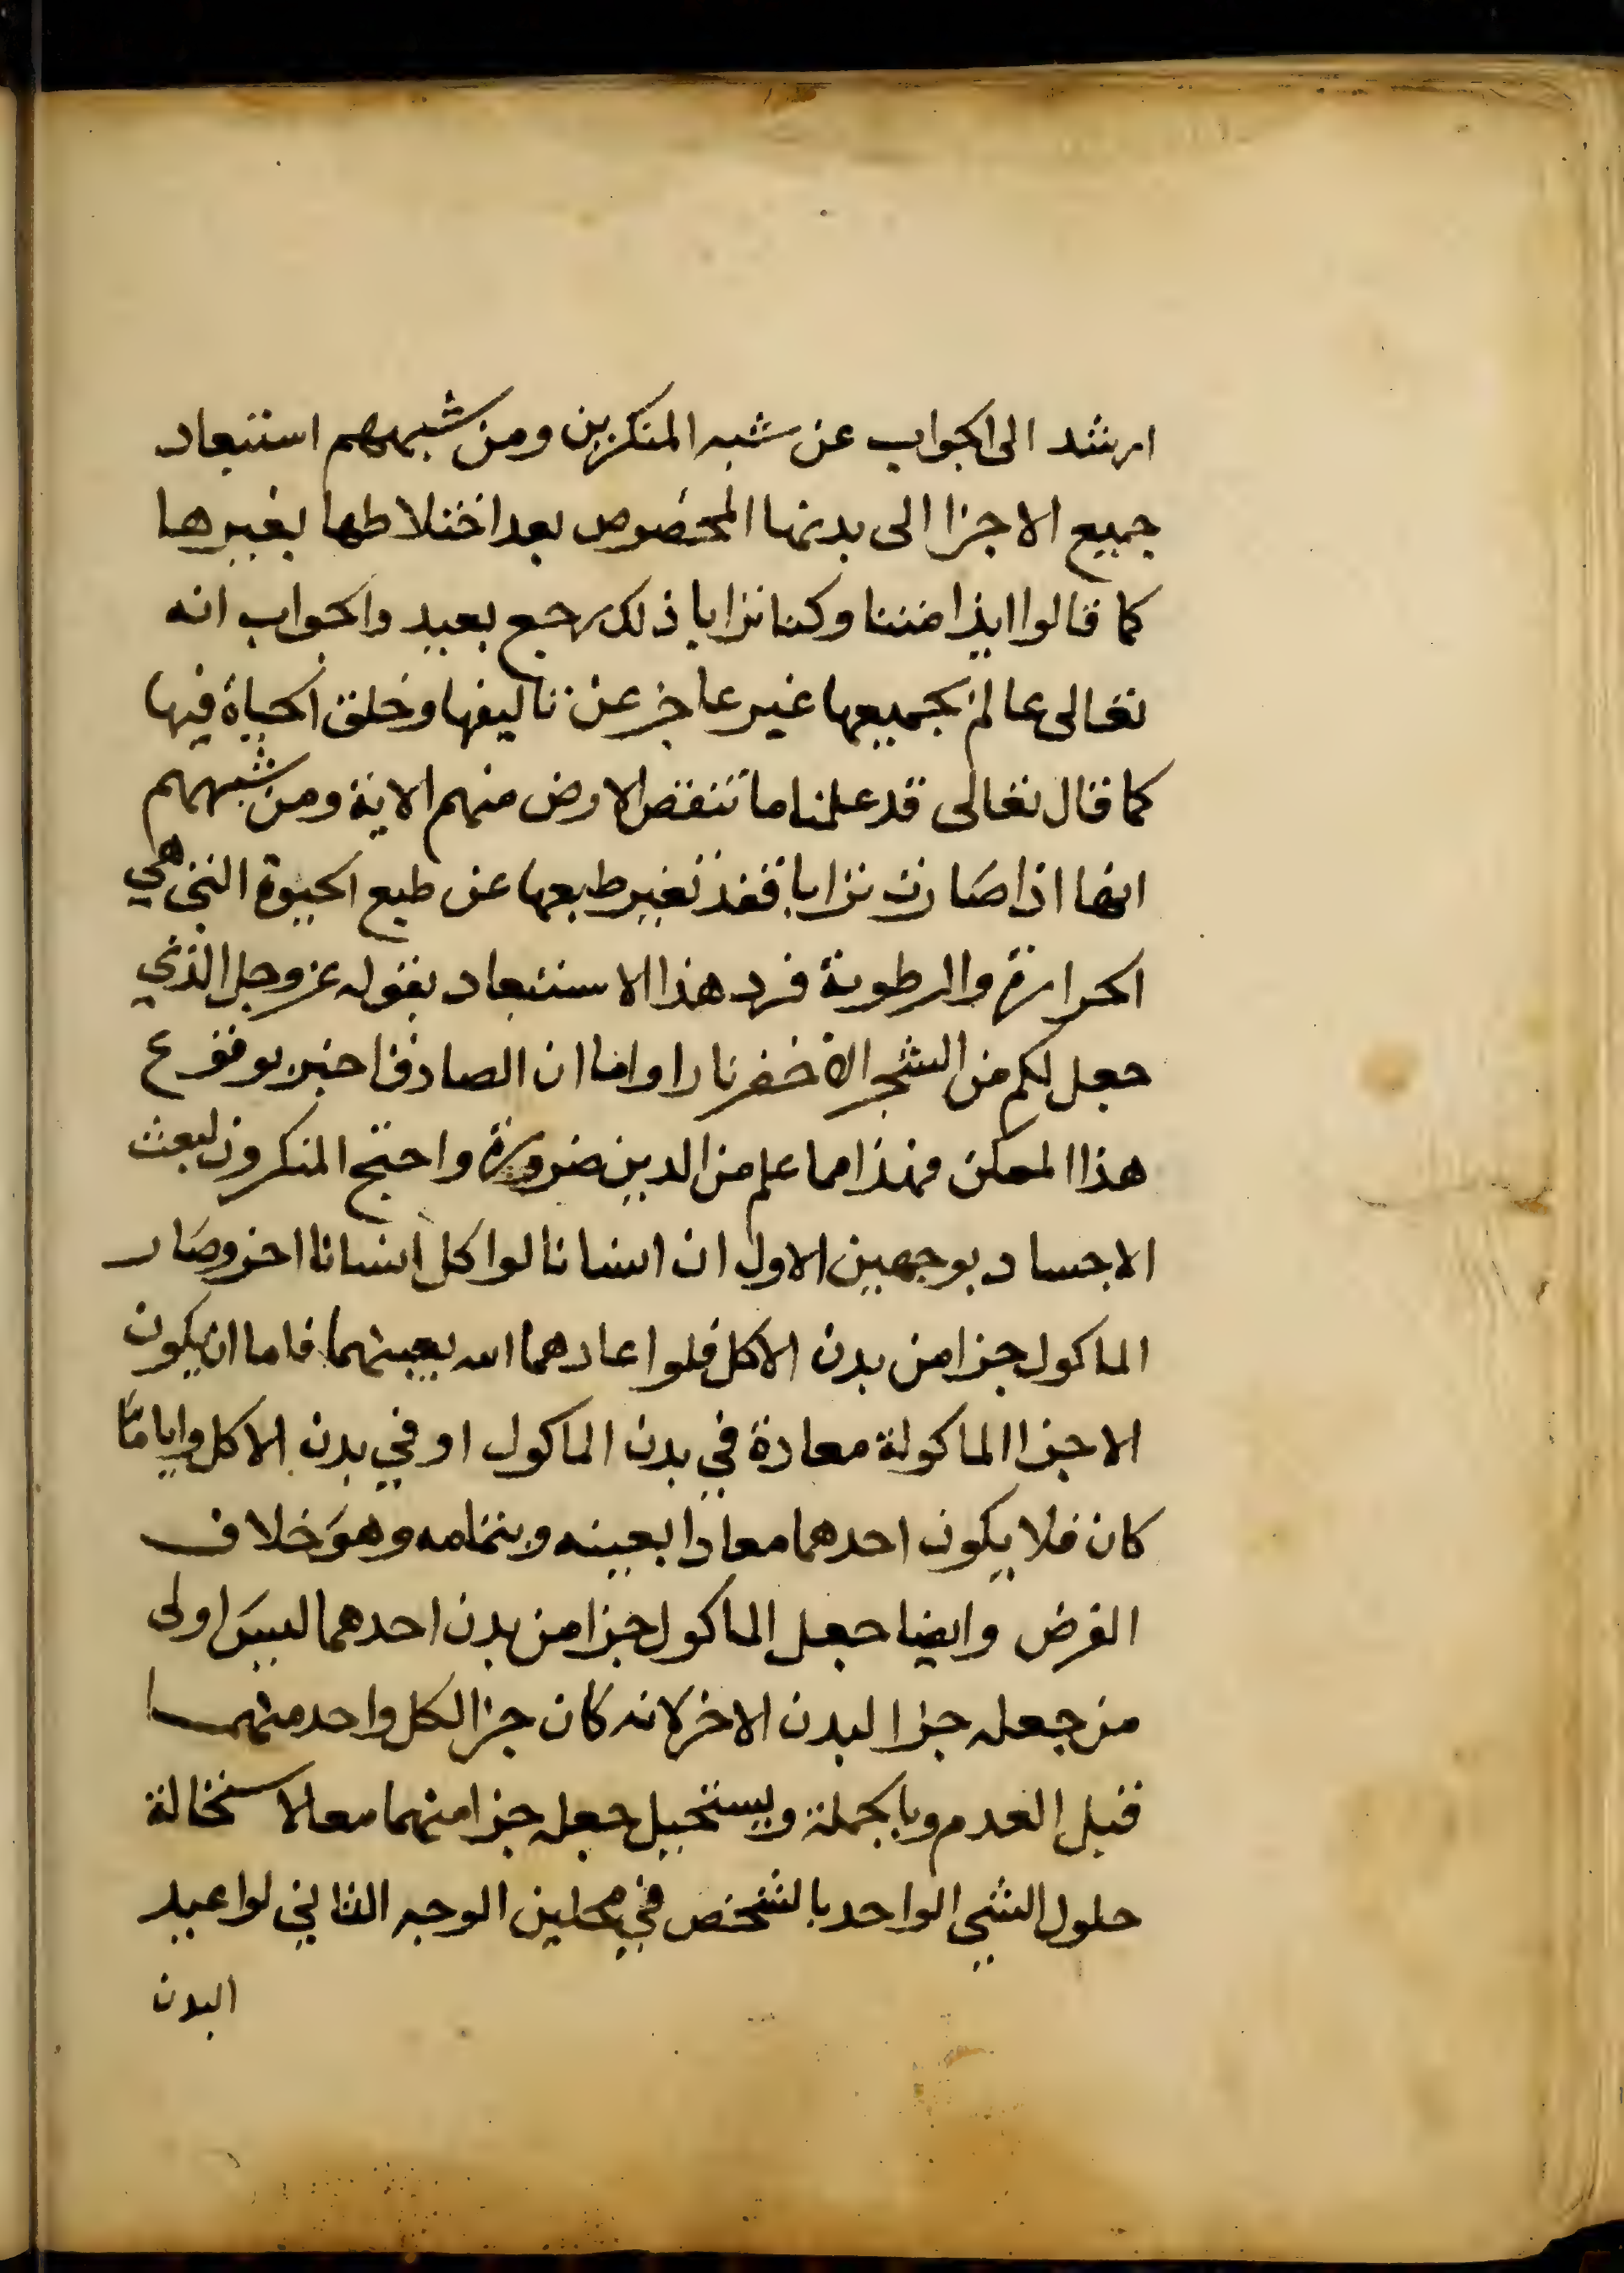 ارشد الى الجواب عن شبه المنكرين ومن شبههم استبعاد
جميع الاجزا الى بدنها المخصوص بعد اختلاطها بغيرها
كما قالوا ايذا متنا وكنا ترابا ذلك رجع بعيد والجواب انه
تعالى عالم بجميعها غير عاجز عن تاليفها وخلق الحياة فيها
كما قال تعالى قد علمنا ما تنقص الارض منهم الاية ومن شبههم
انها اذا صارت ترابا فقد تغير طبعها عن طبع الحيوة التي هي
الحرارة والرطوبة فرد هذا الاستبعاد بقوله عز وجل الذي
جعل لكم من الشجر الاخضر نارا واما ان الصادق اخبر بوقوع
هذا الممكن فهذا مما علم من الدين ضرورة واحتج المنكرون لبعث
الاجساد بوجهين الاول ان انسانا لو اكل انسانا اخر وصار
الماكول جزا من بدن الاكل فلو اعادهما الله بعينهما فاما ان يكون
الاجزا الماكولة معادة في بدن الماكول او في بدن الاكل وايا ما
كان فلا يكون احدهما معادا بعينه وبتمامه وهو خلاف
الفرض وايضا جعل الماكول جزا من بدن احدهما ليس اولى
من جعله جزا لبدن الاخر لانه كان جزا لكل واحد منهما
قبل العدم وبالجملة ويستحيل جعله جزا منهما معا لاستحالة
حلول الشي الواحد بالشخص في محلين الوجه الثاني لو اعيد
البدن